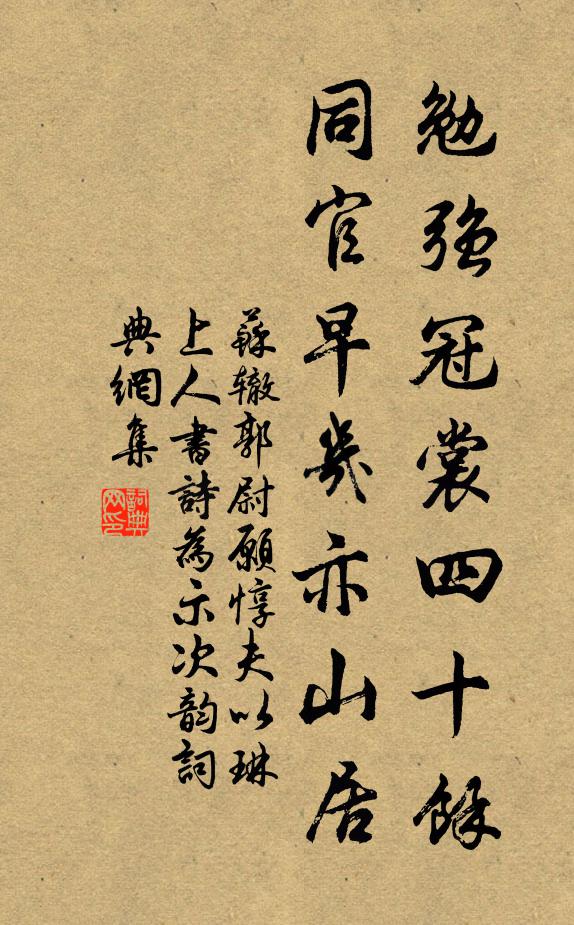 勉強冠裳四十餘
同官早幾亦山居
蘇轍郭尉願惇夫以琳
上人書詩為示次韵詞
典網集
詞典網印